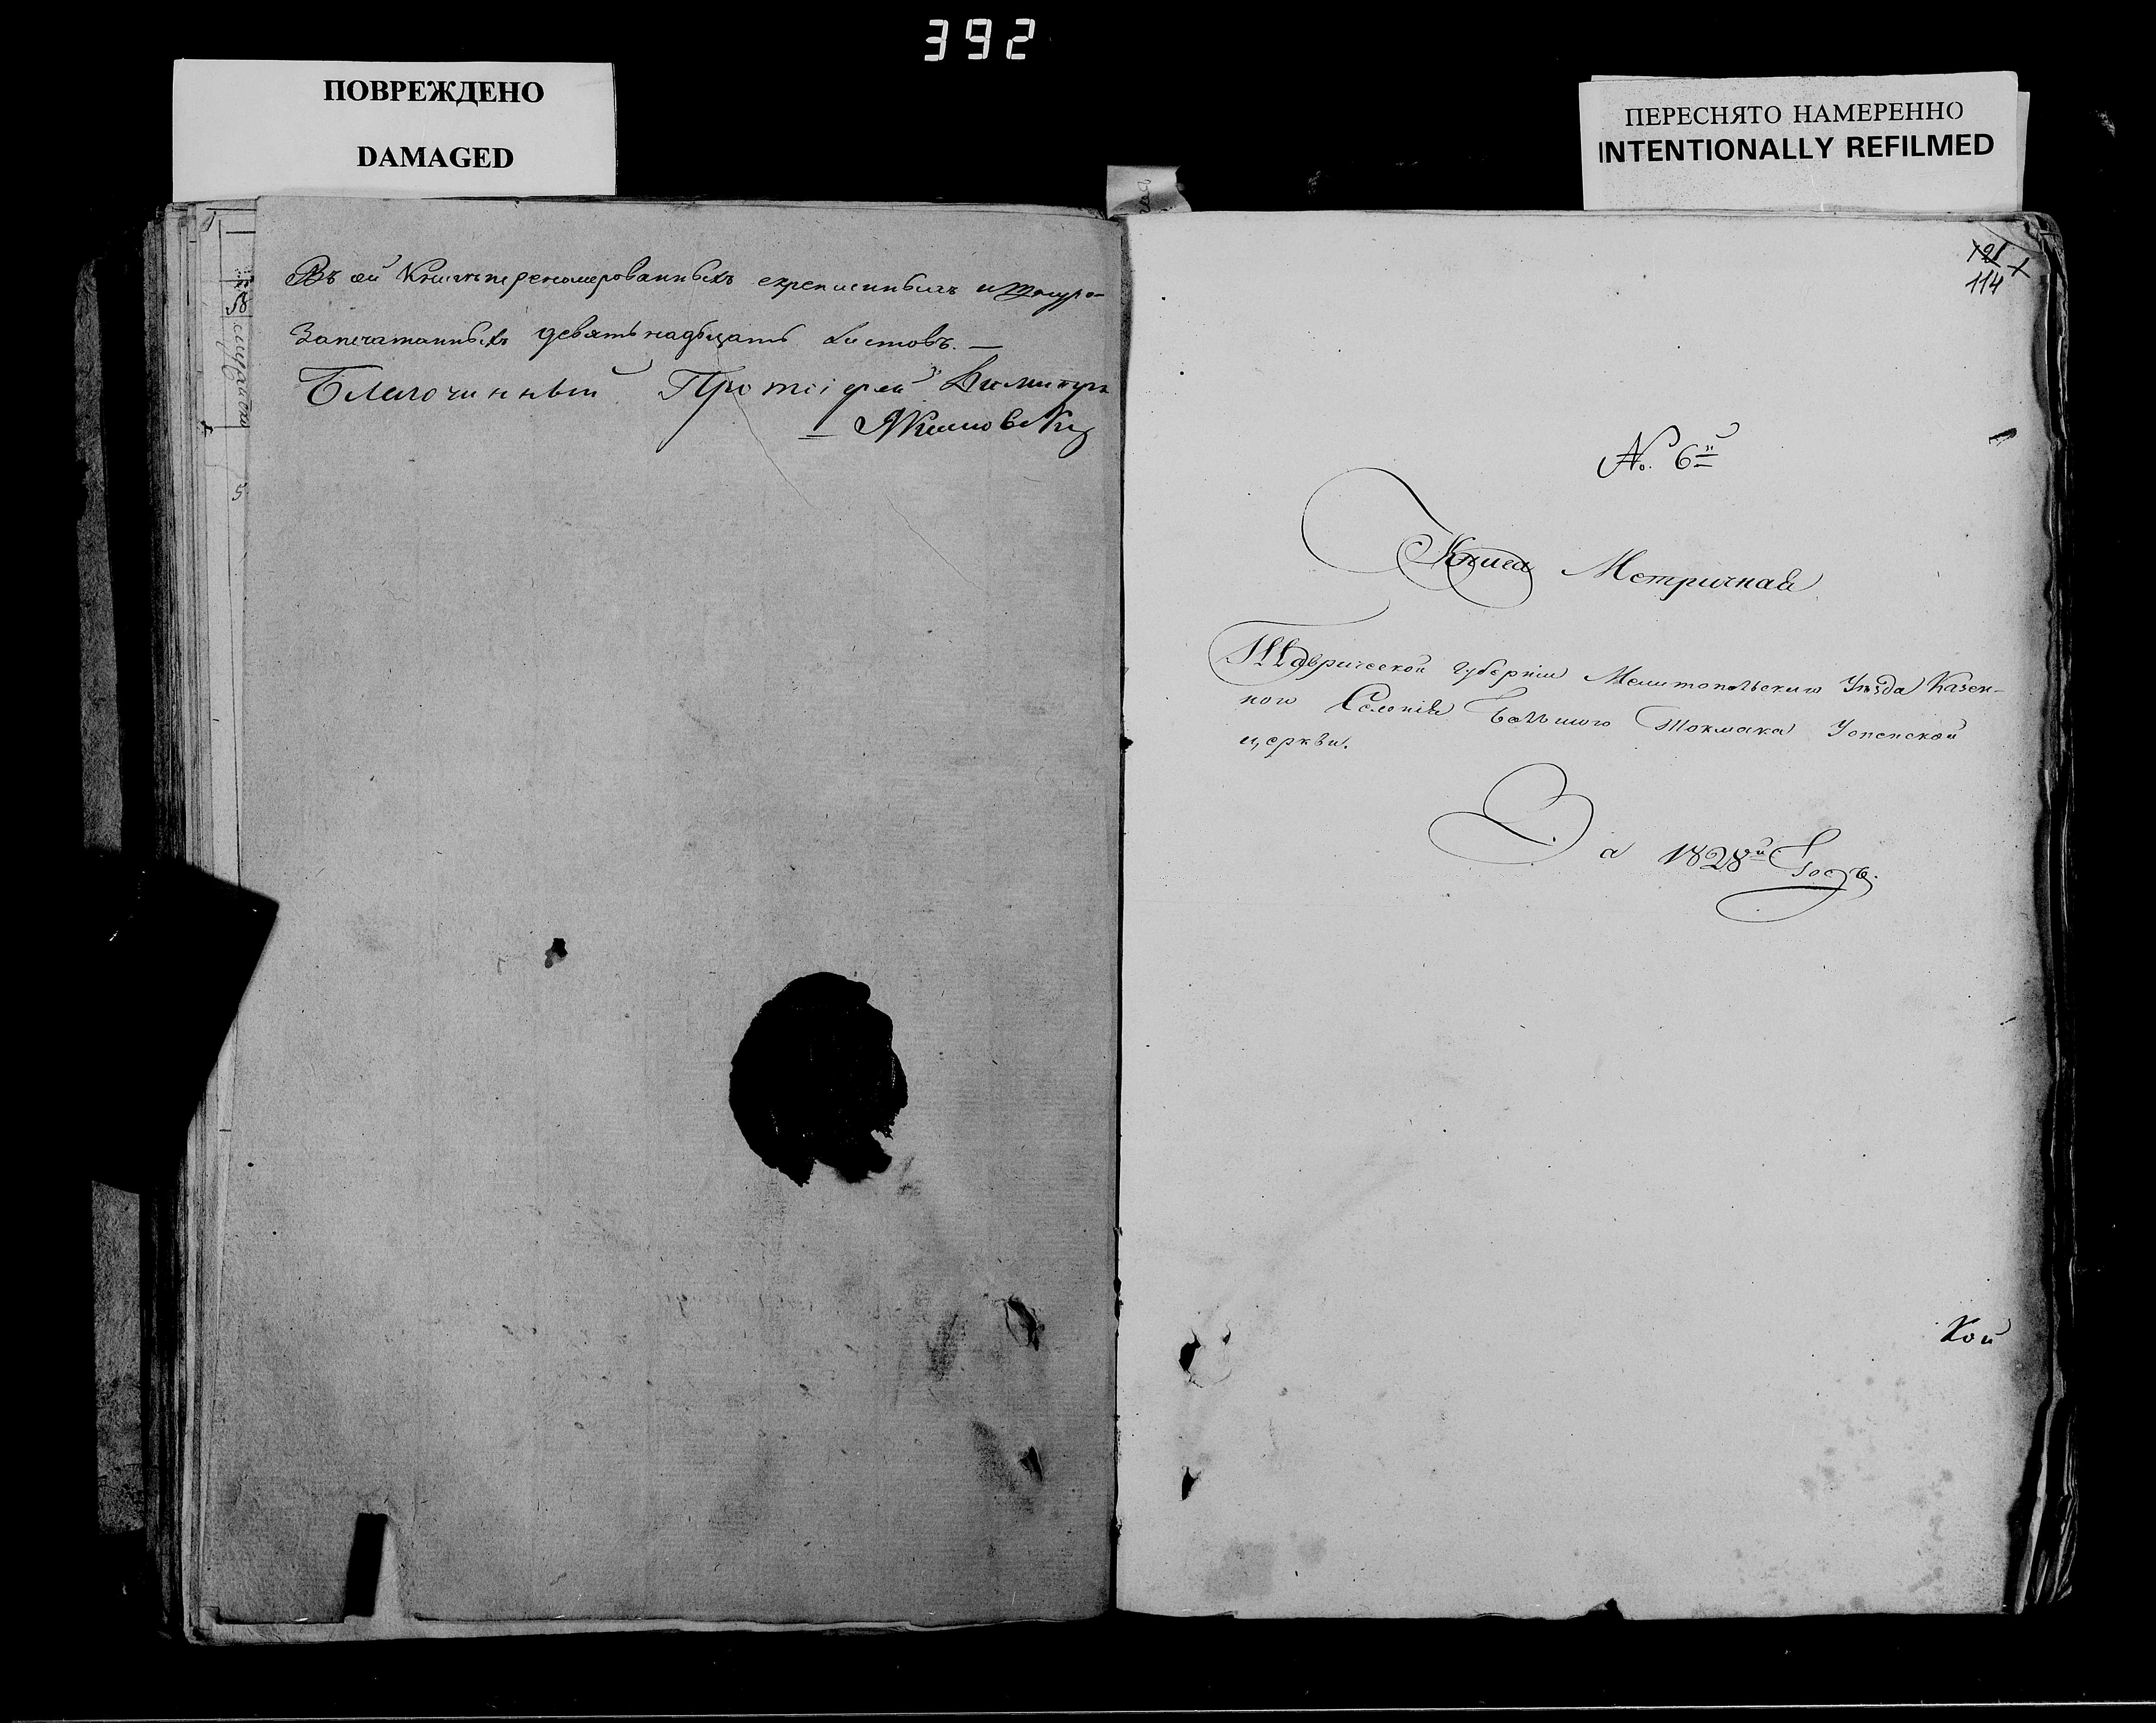 392
ПОВРЕЖДЕНО
DAMAGED
ПЕРЕСНЯТО НАМЕРЕННО
INTENTIONALLY REFILMED
Въ сей Книгѣ перенумерованныхъ скрепленныхъ и шнуро-
Запечатанныхъ девятьнадцать листовъ. —
Благочинный Протоіерей Димитрій
Якимовскій
121
114
№ 6й
Книга Метричная
Таврической Губерніи Мелитопольскаго Уѣзда Казен-
ного Селенія Большого Токмака Успенской
церкви.
За 1828й Годъ.
Кой